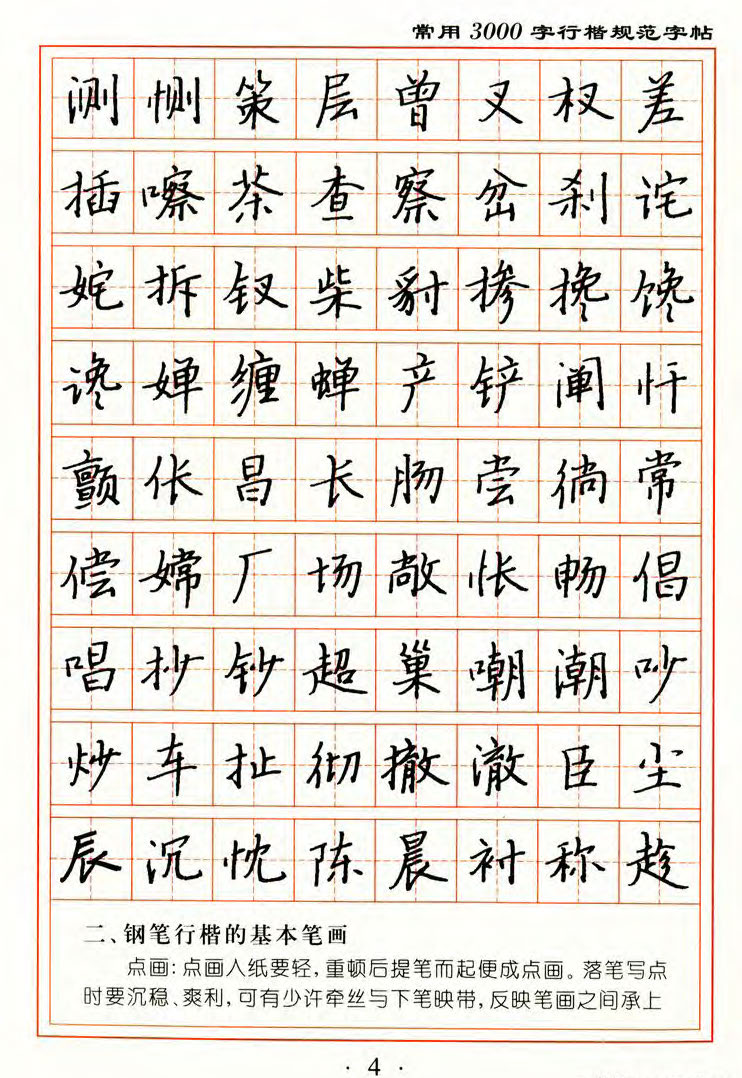 常用3000字行楷规范字帖
测恻策层曾叉杈差
插嚓茶查察岔刹诧
姹拆钗柴豺掺搀馋
谗婵缠蝉产铲阐忏
颤伥昌长肠尝徜常
偿嫦厂场敞怅畅倡
唱抄钞超巢嘲潮吵
炒车扯彻撤澈臣尘
辰沉忱陈晨衬称趁
二、钢笔行楷的基本笔画
点画:点画入纸要轻,重顿后提笔而起便成点画。落笔写点
时要沉稳、爽利,可有少许牵丝与下笔映带,反映笔画之间承上
· 4 ·